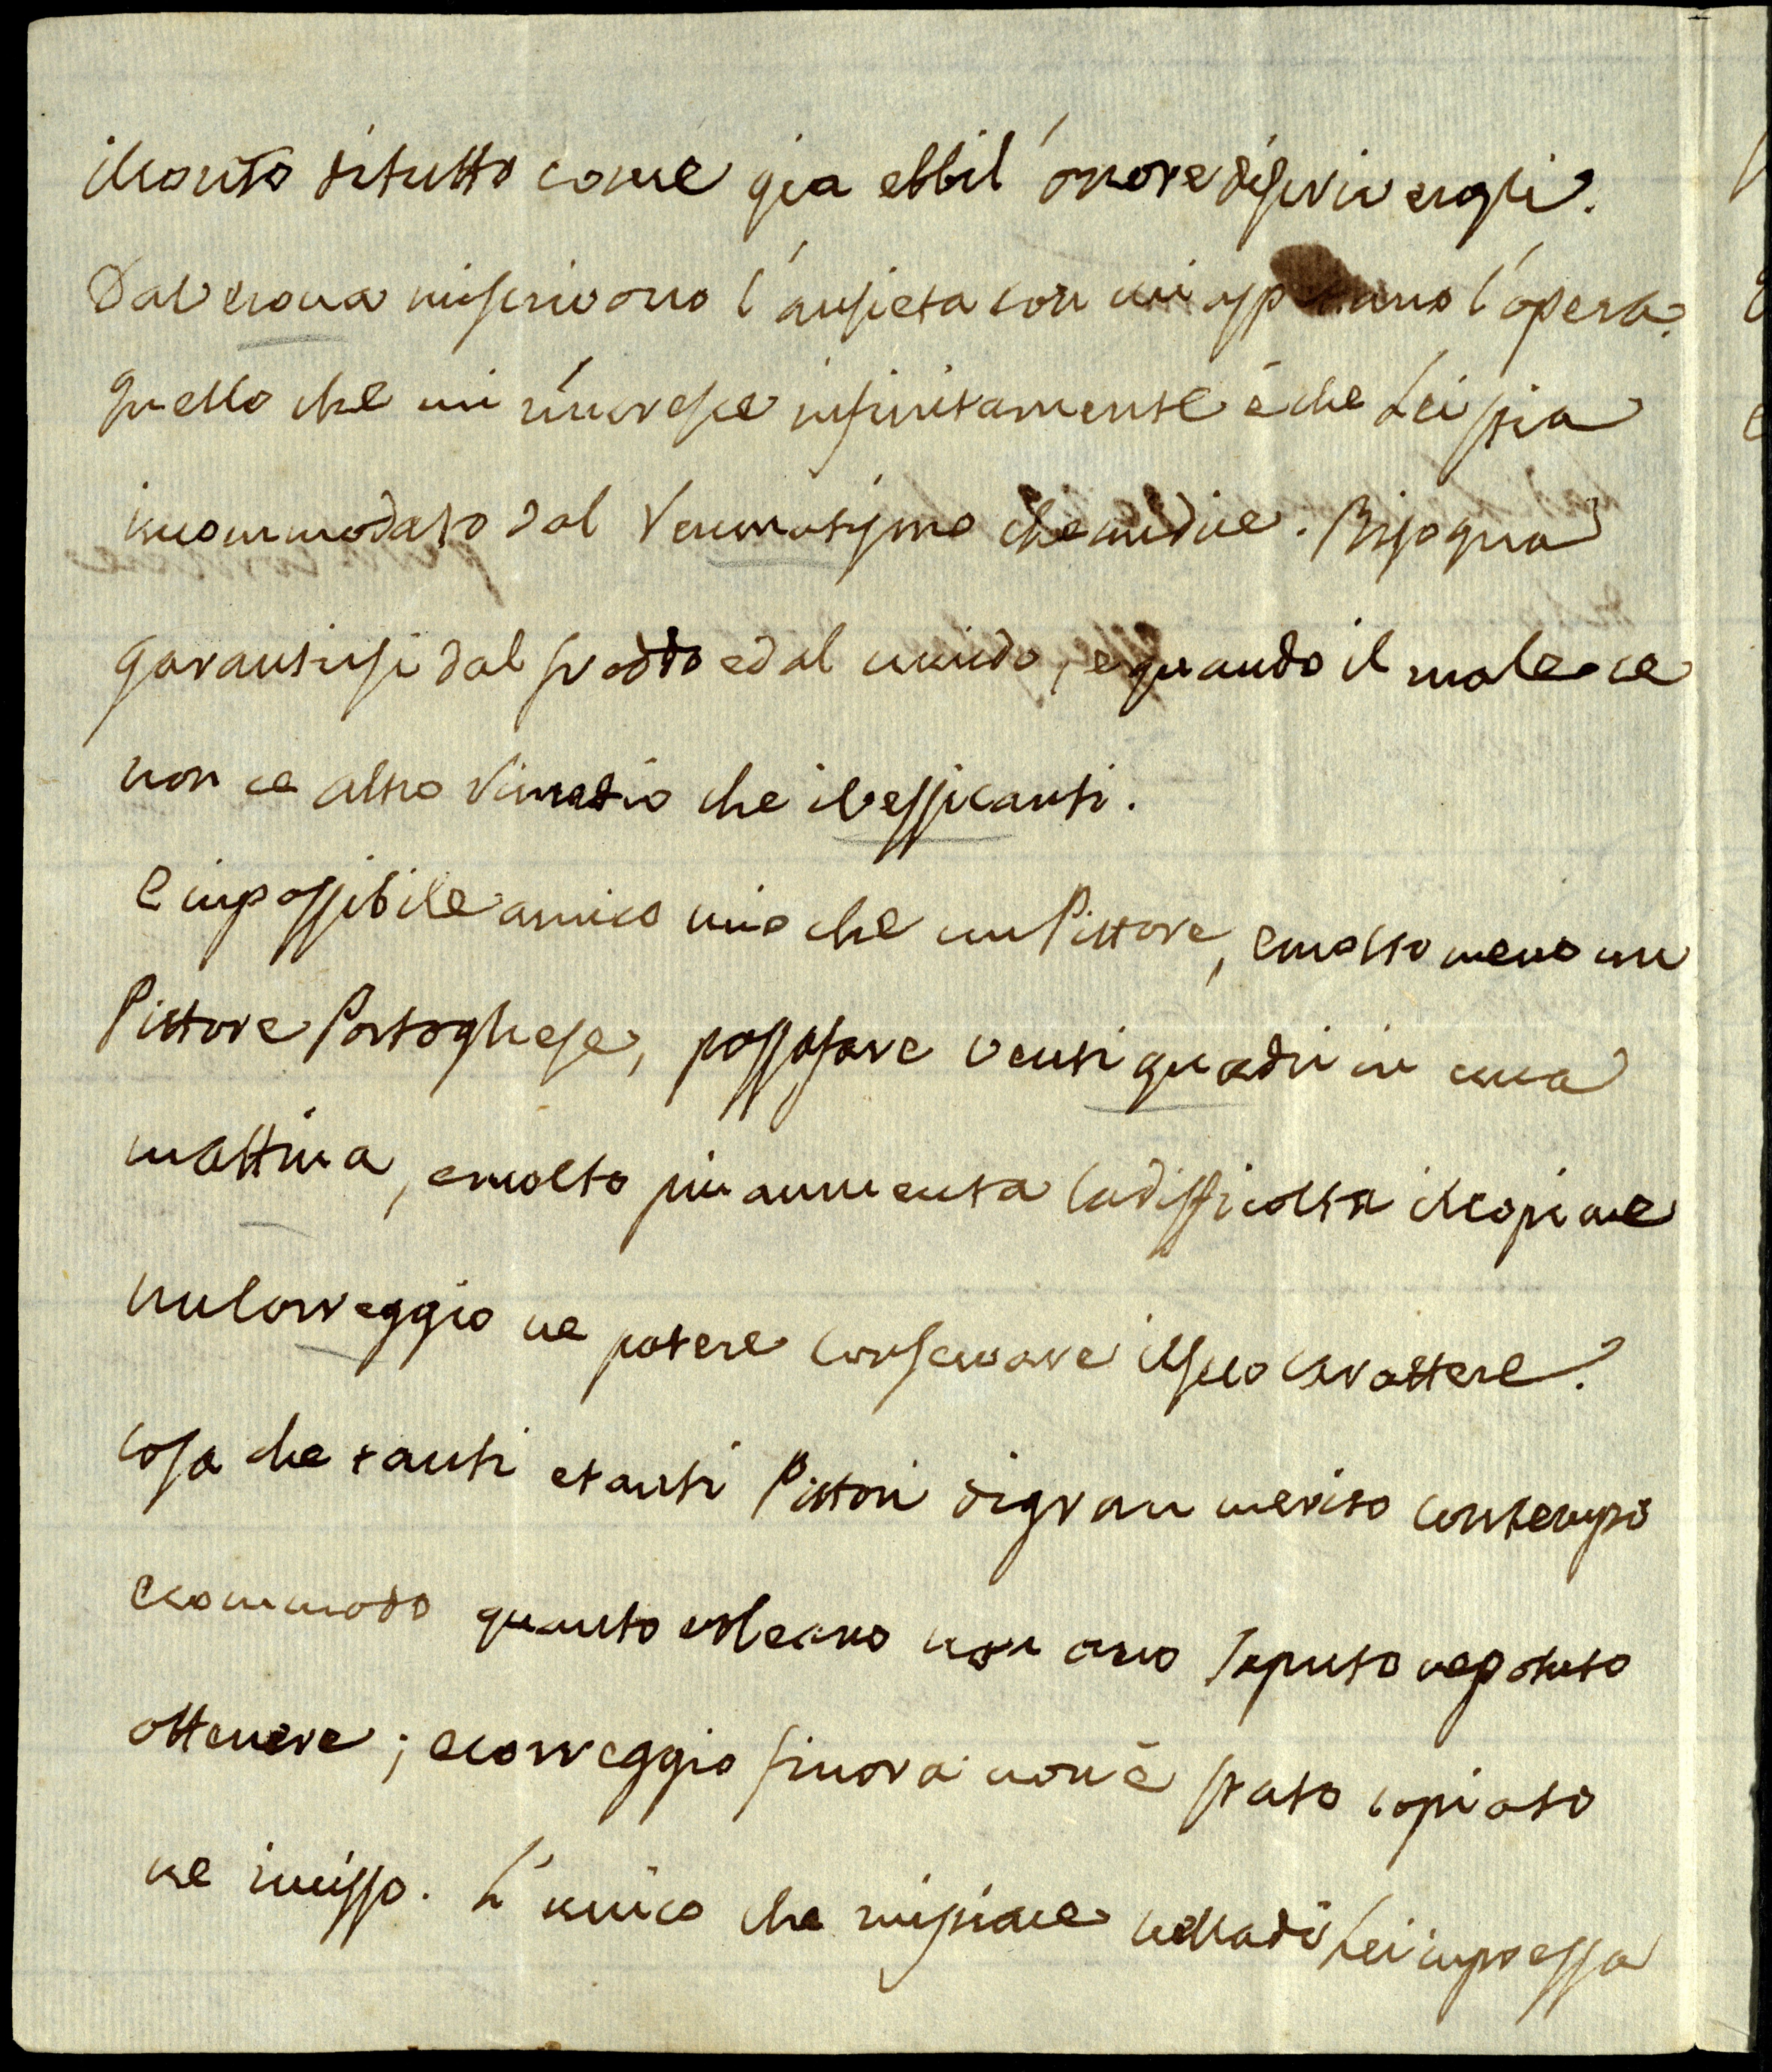 il conto di tutto come gia ebbi l'onore di scrivergli.
Dal Genova mi scrivono l'ansieta con cui aspettano l'opera.
quello che mi rincresce infinitamente è che Lei sia
incommodato dal Reumatismo che mi dice. Bisogna
garantirsi dal freddo e dal umido, e quando il male ce
non ce altro rimedio che i Vessicanti.
E impossibile amico mio che un Pittore, e molto meno un
Pittore Portoghese, possa fare venti quadri in una
mattina, e molto piu aumenta la difficolta il copiare
un Correggio ne potere conservare il suo carattere.
cosa che tanti e tanti Pittori di gran merito con tempo
e commodo quanto voleano non ano saputo ne potuto
ottenere; e Correggio finora non è stato copiato
ne inciso. L'unico che mi piace nella di Lei impressa